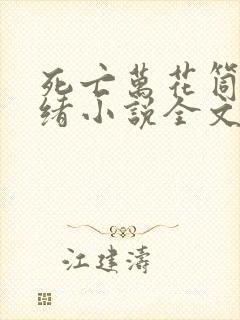 死亡萬花筒
绪小說全文
江建濤